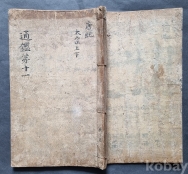 通鑑篆十一
唐紀
太宗上下
kobay